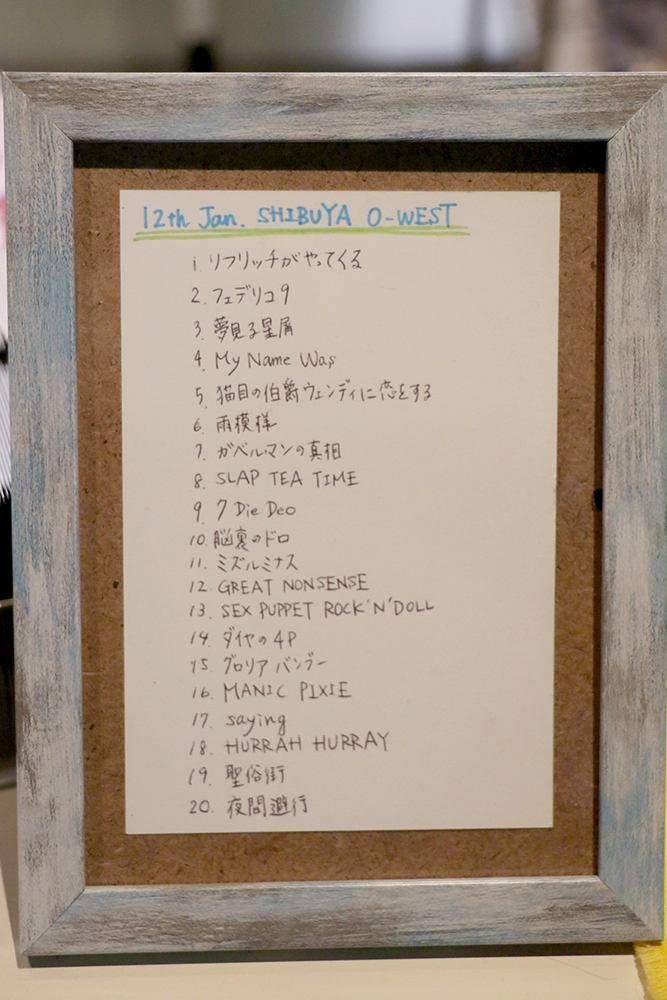 12th Jan. SHIBUYA O-WEST
1. リフリッチがやってくる
2. フェデリコ9
3. 夢見る星屑
4. My Name Was
5. 猫目の伯爵ウェンディに恋をする
6. 雨模様
7. ガベルマンの真相
8. SLAP TEA TIME
9. 7 Die Deo
10. 脳裏のドロ
11. ミズルミナス
12. GREAT NONSENSE
13. SEX PUPPET ROCK'N'DOLL
14. ダイヤの4P
15. グロリアバンブー
16. MANIC PIXIE
17. saying
18. HURRAH HURRAY
19. 聖俗街
20. 夜間避行